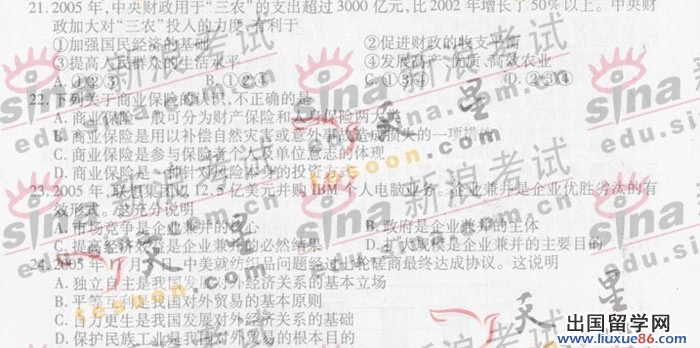 21. 2005 年,中央财政用于“三农”的支出超过 3000 亿元,比 2002 年增长了 50%以上。中央财
政加大对“三农”投入的力度,有利于
①加强国民经济的基础 ②促进财政的收支平衡
③提高人民群众的生活水平 ④发展高产、优质、高效农业
A. ①②③ B. ①②④ C. ①③④ D. ②③④
22. 下列关于商业保险的认识,不正确的是
A. 商业保险一般可分为财产保险和人身保险两大类
B. 商业保险是用以补偿自然灾害或意外事故造成损失的一项措施
C. 商业保险是参与保险者个人及单位意志的体现
D. 商业保险是一种针对风险本身的投资方式
23. 2005 年,联想集团以 12.5 亿美元并购 IBM 个人电脑业务。企业兼并是企业优胜劣汰的有
效形式。这充分说明
A. 市场竞争是企业兼并的核心 B. 政府是企业兼并的主体
C. 提高经济效益是企业兼并的必然结果 D. 扩大规模是企业兼并的主要目的
24. 2005 年 月 日,中美就纺织品问题经过七轮磋商最终达成协议。这说明
A. 独立自主是我国发展对外经济关系的基本立场
B. 平等互利是我国对外贸易的基本原则
C. 自力更生是我国发展对外经济关系的基础
D. 保护民族工业是我国对外贸易的根本目的
sina 新浪考试
edu.sina
天星
tesoon.com
出国留学网
www.liuxue86.com